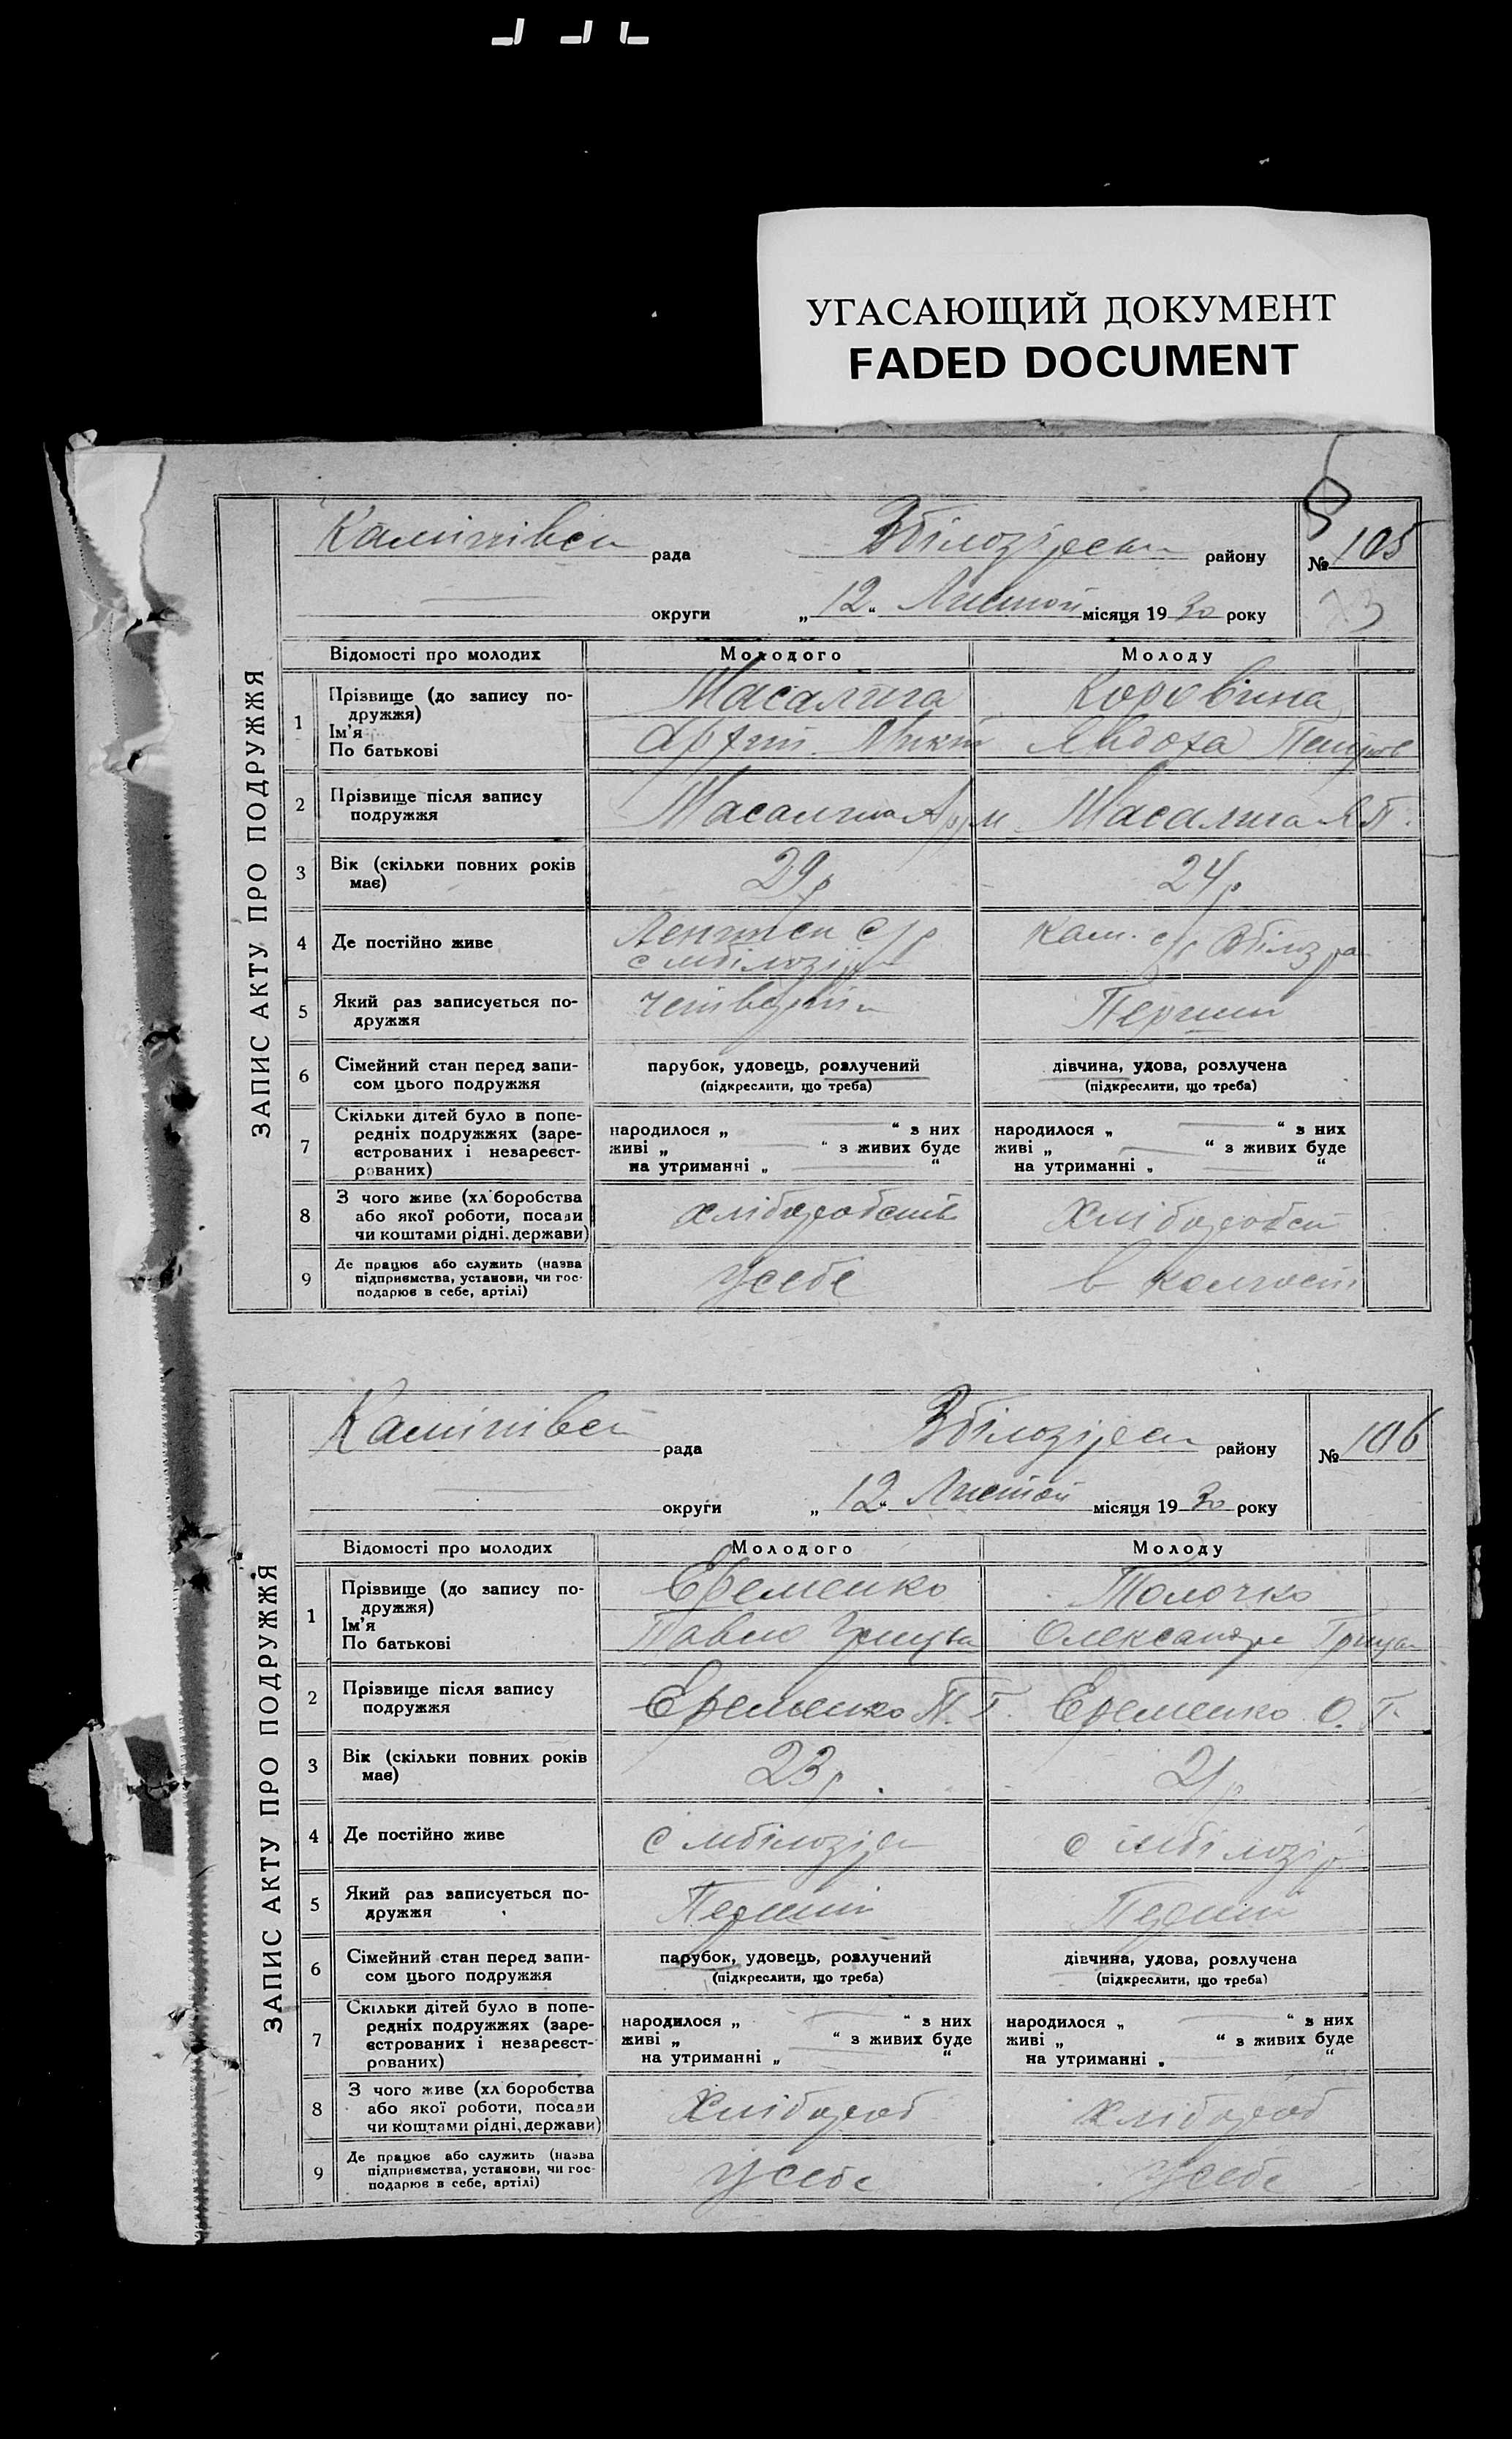 УГАСАЮЩИЙ ДОКУМЕНТ
FADED DOCUMENT
ЗАПИС АКТУ ПРО ПОДРУЖЖЯ
рада району № 105
округи „ 12 “ місяця 1930 року
Відомості про молодих Молодого Молоду
1 Прізвище (до запису по-
дружжя)
Ім'я
По батькові
Масалига
Коровина
Явдоха
2 Прізвище після запису
подружжя
Масалига Масалига Я П.
3 Вік (скільки повних років
має)
29 р 24 р
4 Де постійно живе
с/р
Кам. с/р
5 Який раз записується по-
дружжя
Перший
6 Сімейний стан перед запи-
сом цього подружжя
парубок, удовець, розлучений
(підкреслити, що треба)
дівчина, удова, розлучена
(підкреслити, що треба)
7 Скільки дітей було в попе-
редніх подружжях (заре-
єстрованих і незареєст-
рованих)
народилося „ “ з них
живі „ “ з живих буде
на утриманні „ “
народилося „ “ з них
живі „ “ з живих буде
на утриманні „ “
8 З чого живе (хл боробства
або якої роботи, посади
чи коштами рідні. держави)
9 Де працює або служить (назва
підприємства, установи, чи гос-
подарює в себе, артілі)
у себе в
ЗАПИС АКТУ ПРО ПОДРУЖЖЯ
рада району № 106
округи „ 12 “ місяця 1930 року
Відомості про молодих Молодого Молоду
1 Прізвище (до запису по-
дружжя)
Ім'я
По батькові
Еременко
Толочко
Павло
Олександра
2 Прізвище після запису
подружжя
Еременко П. Г. Еременко О. Г.
3 Вік (скільки повних років
має)
23 р. 21 р
4 Де постійно живе
с с
5 Який раз записується по-
дружжя
Перший Перший
6 Сімейний стан перед запи-
сом цього подружжя
парубок, удовець, розлучений
(підкреслити, що треба)
дівчина, удова, розлучена
(підкреслити, що треба)
7 Скільки дітей було в попе-
редніх подружжях (заре-
єстрованих і незареєст-
рованих)
народилося „ “ з них
живі „ “ з живих буде
на утриманні „ “
народилося „ “ з них
живі „ “ з живих буде
на утриманні „ “
8 З чого живе (хл боробства
або якої роботи, посади
чи коштами рідні, держави)
хлібороб хлібороб
9 Де працює або служить (назва
підприємства, установи, чи гос-
подарює в себе, артілі)
у себе у себе